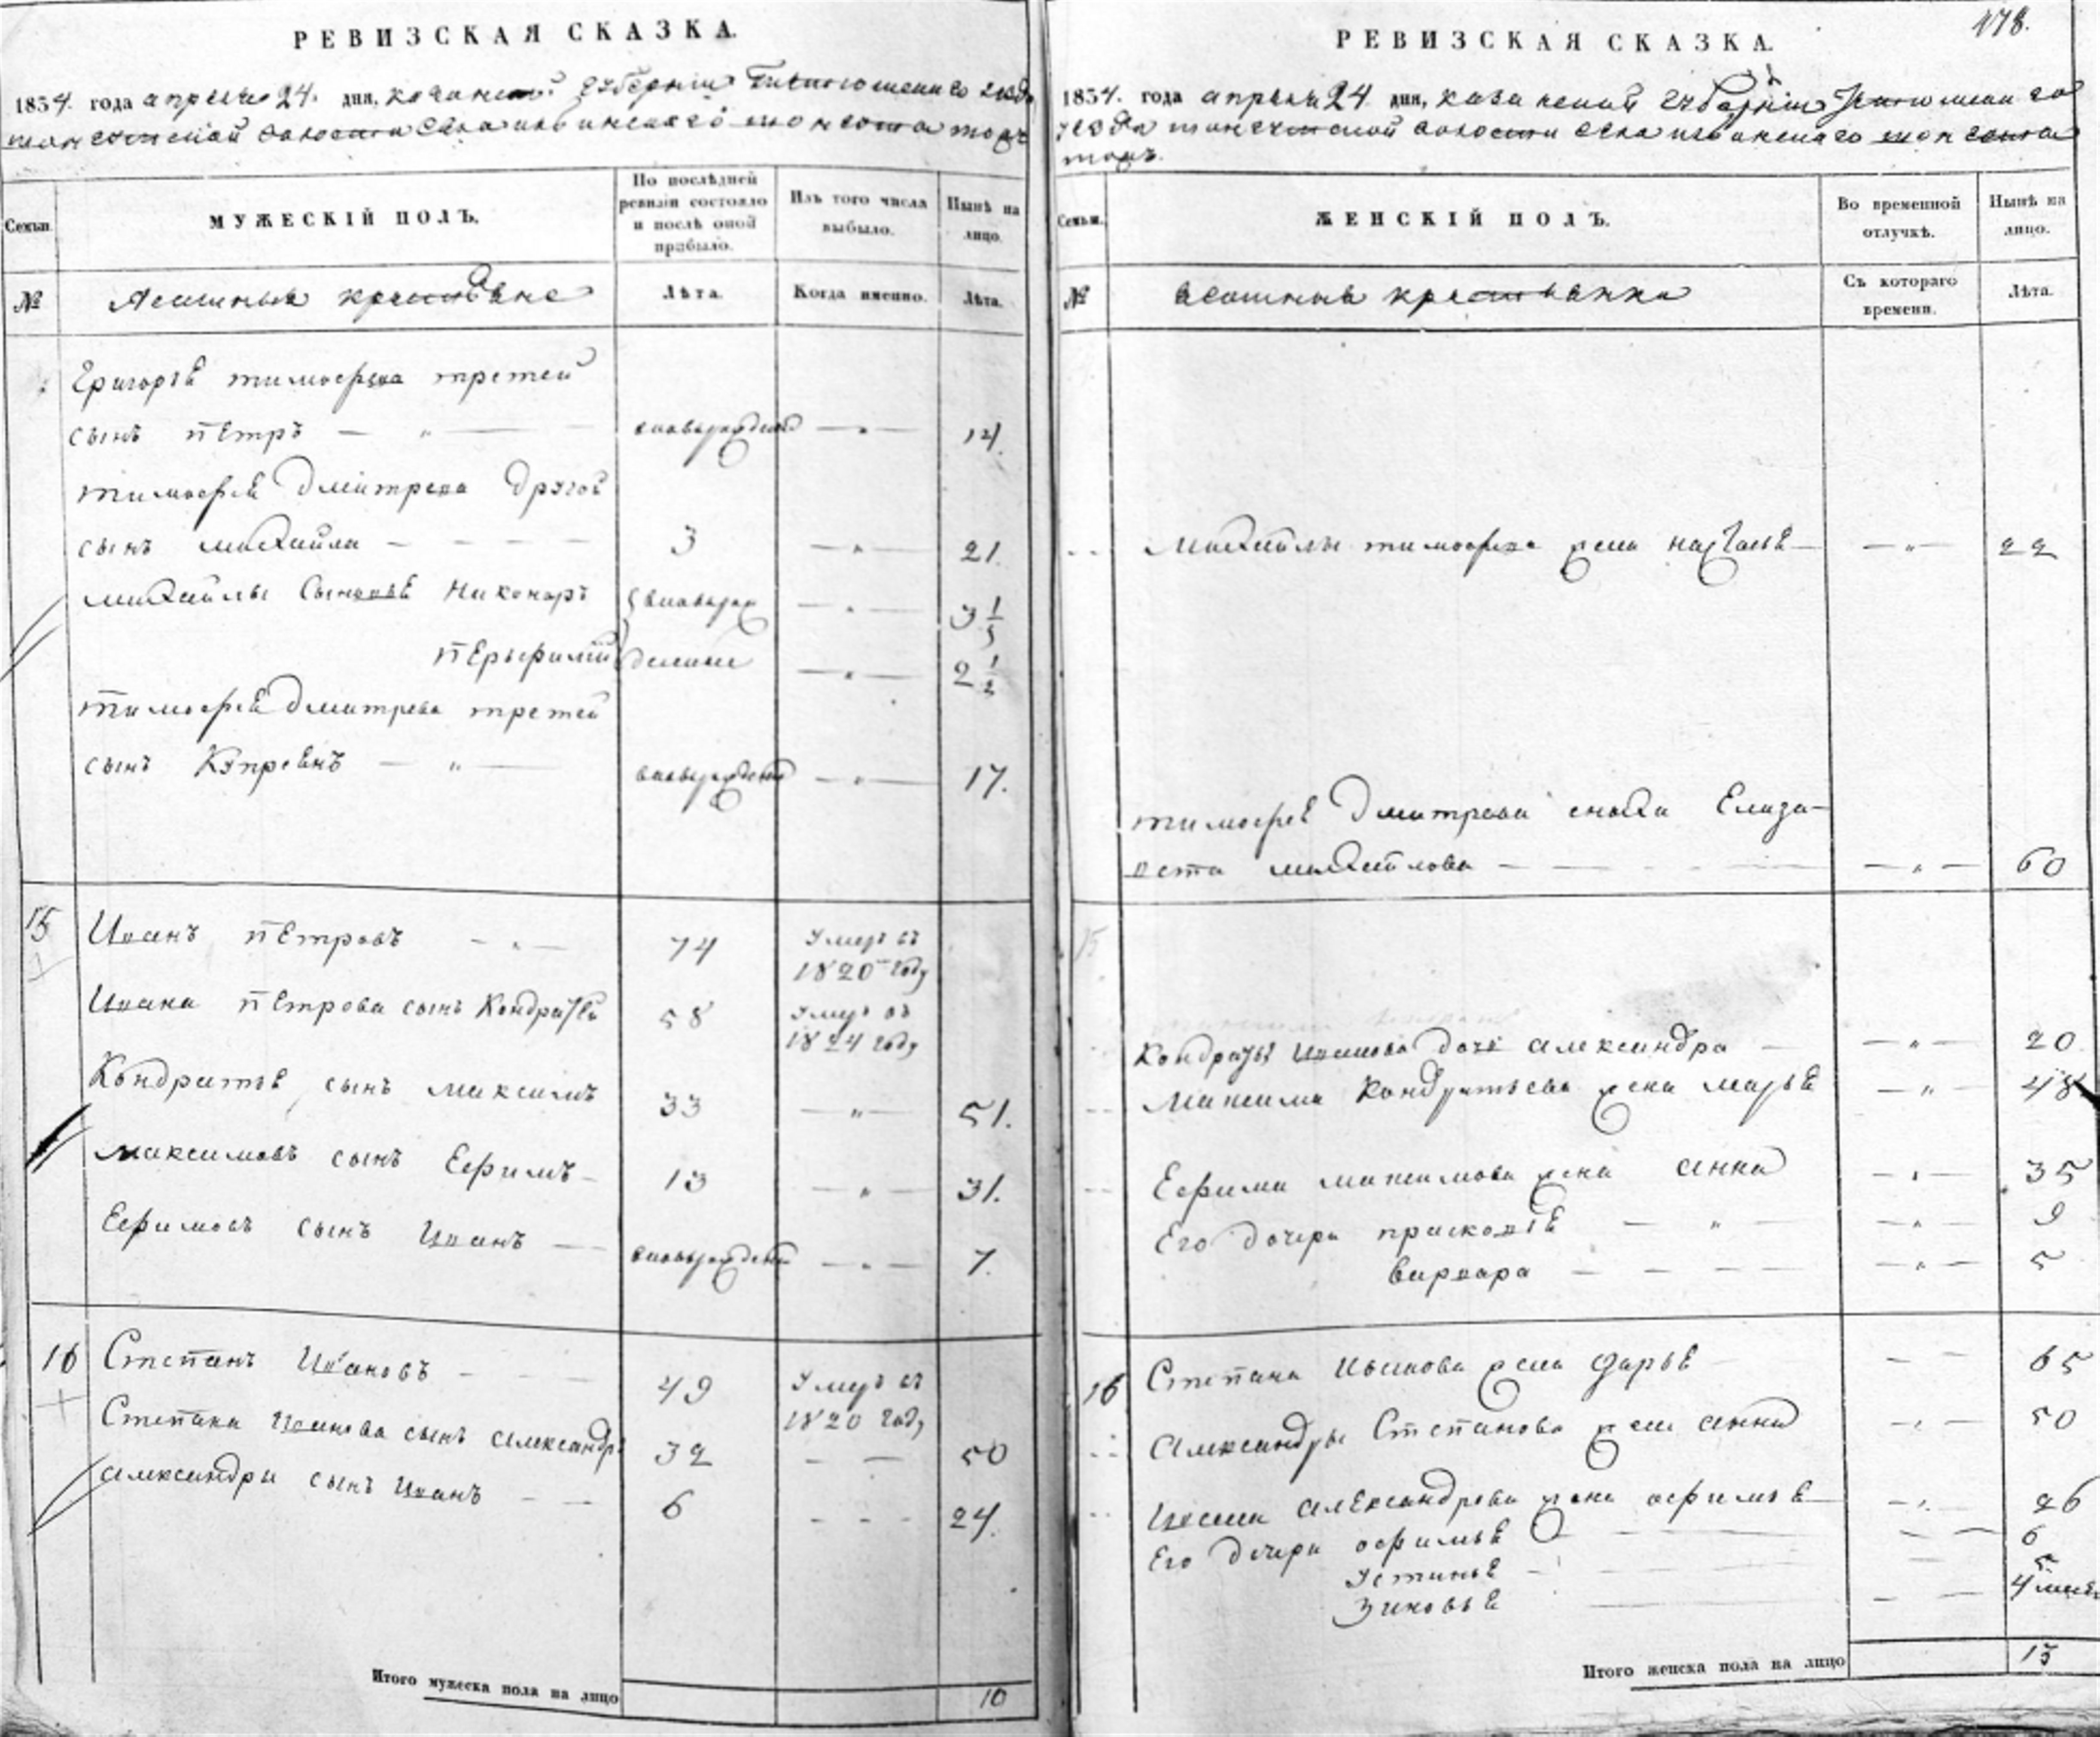 РЕВИЗСКАЯ СКАЗКА.
1834. года апреля 24. дня, казанской губернии
волости тожъ
Семьи.
МУЖЕСКІЙ ПОЛЪ.
По послѣдней ревизіи состояло и послѣ оной прибыло.
Изъ того числа выбыло.
Нынѣ на лицо.
№
Ясашныя крестьяне
Лѣта.
Когда именно.
Лѣта.
Григорья тимофеева третей
сынъ петръ — „ — вновьрожденъ — „ — 14.
тимофея дмитрева другой
сынъ михайла — 3 — „ — 21.
михайлы сыновья Никоноръ вновьрож — „ — 3
денные — „ — 2 1/2
тимофея дмитрева третей
сынъ Купреянъ — „ — вновьрожденъ — „ — 17.
15 Иванъ петровъ — „ — 74 Умеръ въ 1820 году
Ивана петрова сынъ Кондратей 58 Умеръ въ 1824 году
Кондратья сынъ максимъ 33 — „ — 51.
максимовъ сынъ Ефимъ — 13 — „ — 31.
Ефимовъ сынъ Иванъ — вновьрожденъ — „ — 7.
16 Степанъ Ивановъ — 49 Умеръ въ 1820 году
Степана Иванова сынъ александръ 32 — — 50
александра сынъ Иванъ — — 6 — — — 24.
Итого мужеска пола на лицо 10
478.
РЕВИЗСКАЯ СКАЗКА.
1834. года апреля 24 дня, казанской губерніи
уезда волости села
тожъ.
Семьи.
ЖЕНСКІЙ ПОЛЪ.
Во временной отлучкѣ.
Нынѣ на лицо.
№
ясашныя крестьянки
Съ котораго времени.
Лѣта.
Михайлы тимофеева жена наталья — — „ — 22
тимофея дмитрева сноха Елиза-
вета михайлова — — „ — 60
15
Кондратья Иванова дочь александра — — „ — 20
Максима Кондратьева жена марья — „ 48
Ефима максимова жена анна — „ — 35
Его дочери прасковья — „ — — „ — 9
варвара — — — — — „ — 5
16 Степана Иванова жена дарья — — 65
александры Степанова жена анна — „ — 50
Ивана александрова жена афимья — — „ — 26
Его дочери афимья — — 6
Устинья — 5
Зиновья — — 4
Итого женска пола на лицо 13